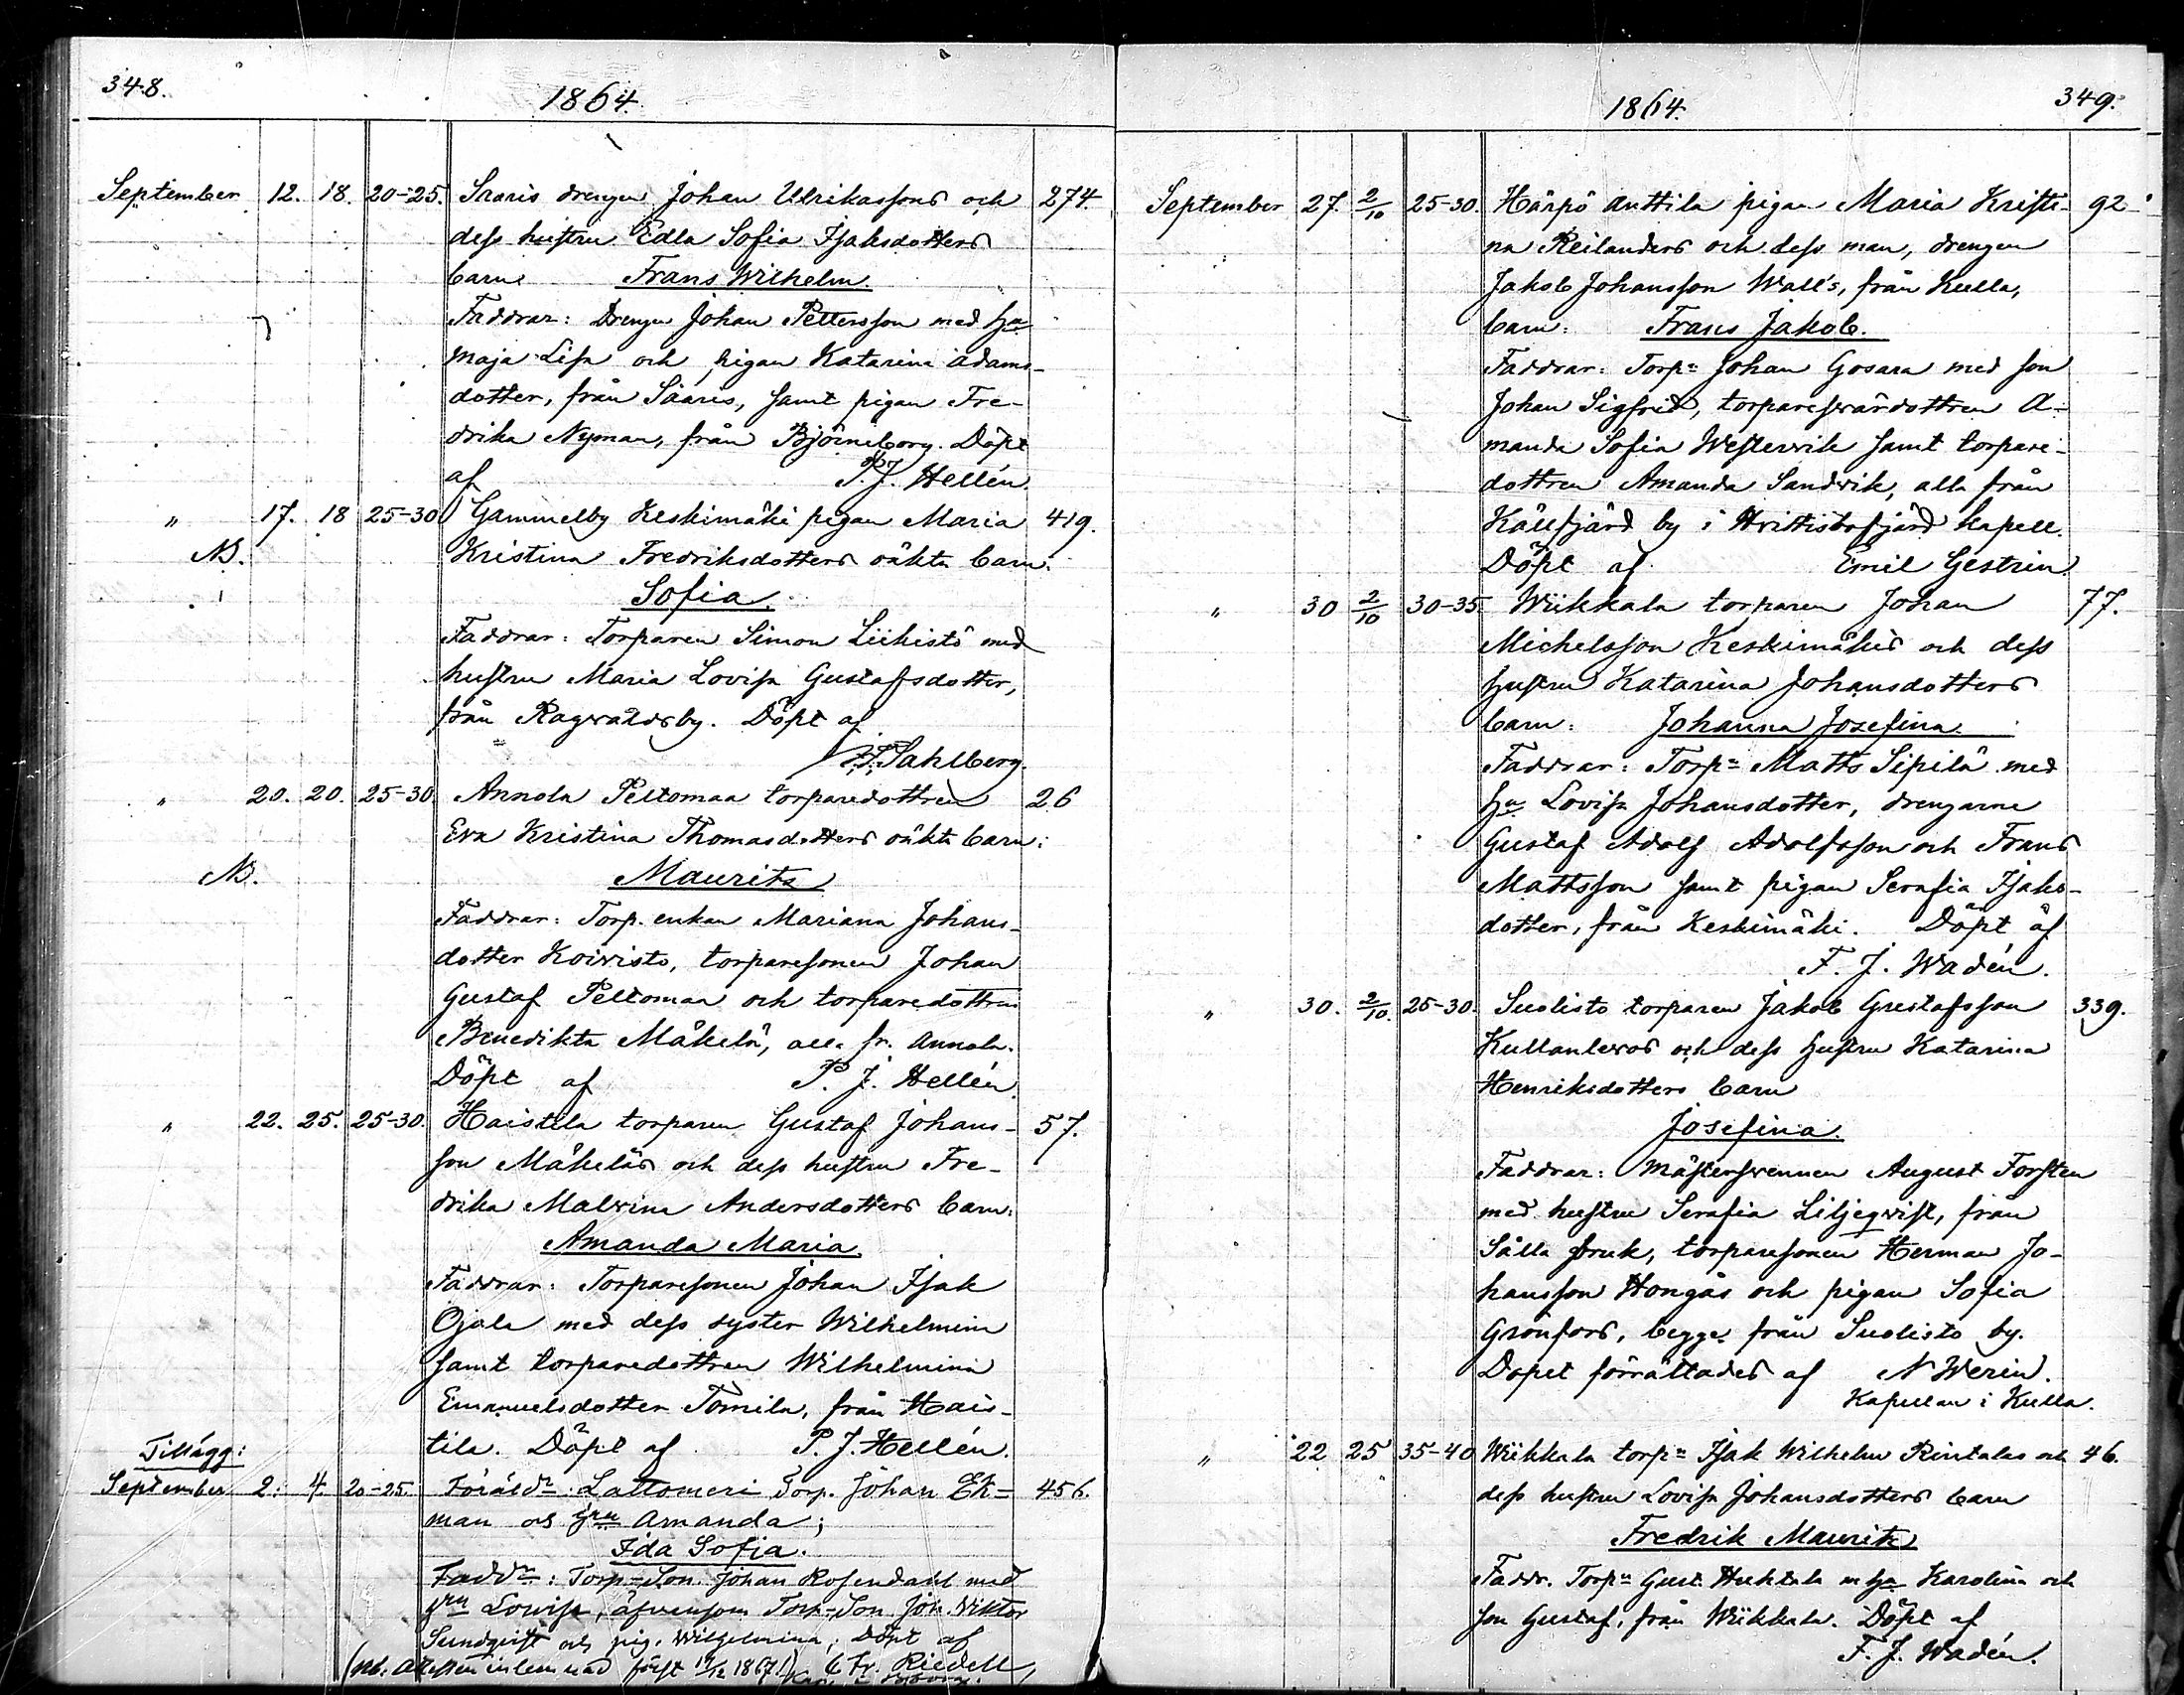 348.
1864.
September 12. 18. 20-25. Saaris drengen Johan Ulrikassons och 274.
dess hustru Edla Sofia Isaksdotters
barn: Frans Wilhelm.
Faddrar: Drengen Johan Pettersson med hu
Maja Lisa och pigan Katarina Adams-
dotter, från Saaris, samt pigan Fre-
drika Nyman, från Björneborg. Döpt
af P. J. Hellén.
" 17. 18 25-30 Gammelby Keskimäki pigan Maria 419.
NB. Kristina Fredriksdotters oäkta barn:
Sofia.
Faddrar: Torparen Simon Liikistö med
hustru Maria Lovisa Gustafsdotter,
från Ragvaldsby. Döpt af
Sahlberg.
" 20. 20. 25-30. Annola Peltomaa torparedottren 26
Eva Kristina Thomasdotters oäkta barn:
NB. Mauritz
Faddrar: Torp. enkan Mariana Johans-
dotter Koivisto, torparesonen Johan
Gustaf Peltomaa och torparedottren
Benedikta Mäkelä, alla fr. Annola.
Döpt af P. J. Hellén.
" 22. 25. 25-30. Haistila torparen Gustaf Johans- 57.
son Mäkeläs och dess hustru Fre-
drika Malvina Andersdotters barn:
Amanda Maria.
Faddrar: Torparesonen Johan Isak
Ojala med dess syster Wilhelmina
samt torparedottren Wilhelmina
Emanuelsdotter Tomila, från Hais-
tila. Döpt af P. J. Hellén.
Tillägg:
September 2. 4. 20-25. Föräldr: Lattomeri Torp. Johan Ek- 456.
man och hru Amanda;
Ida Sofia.
Faddr: Torp-Son. Johan Rosendahl med
hru Lovisa, äfvensom Torp-Son Joh. Viktor
Sundqvist och pig. Wilhelmina; Döpt af
(NB. Attesten inlemnad först 19/12 1867.) Fr. Riedell,
349.
1864.
September 27. 2/10 25-30. Härpö Anttila pigan Maria Kristi- 92
na Reilanders och dess man, drengen
Jakob Johansson Wall's, från Kulla,
barn: Frans Jakob.
Faddrar: Torpn Johan Gosara med son
Johan Sigfrid, torparesvärdottren A-
manda Sofia Westervik samt torpare-
dottren Amanda Sandvik, alla från
Källfjärd by i Hvittisbofjärd kapell.
Döpt af Emil Gestrin.
" 30 2/10 30-35. Wiikkala torparen Johan 77.
Michelsson Keskimäkis och dess
hustru Katarina Johansdotters
barn: Johanna Josefina.
Faddrar: Torpn Matts Sipilä med
hu Lovisa Johansdotter, drengarne
Gustaf Adolf Adolfsson och Frans
Mattsson samt pigan Serafia Isaks-
dotter, från Keskimäki. Döpt af
F. J. Wadén.
" 30. 2/10. 25-30. Suolisto torparen Jakob Gustafsson 339.
Kullanlevos och dess hustru Katarina
Henriksdotters barn
Josefina.
Faddrar: Mästersvennen August Forsten
med hustru Serafia Liljeqvist, från
Sålla bruk, torparesonen Herman Jo-
hansson Hongas och pigan Sofia
Grönfors, begge från Suolisto by.
Dopet förrättades af N Werin.
Kapellan i Kulla.
" 22 25 35-40 Wiikkala torpn Isak Wilhelm Rintalas och 46.
dess hustru Lovisa Johansdotters barn
Fredrik Mauritz
Faddr. Torpn Gust. Huktala m hu Karolina och
son Gustaf, från Wiikkala. Döpt af
F. J. Wadén.